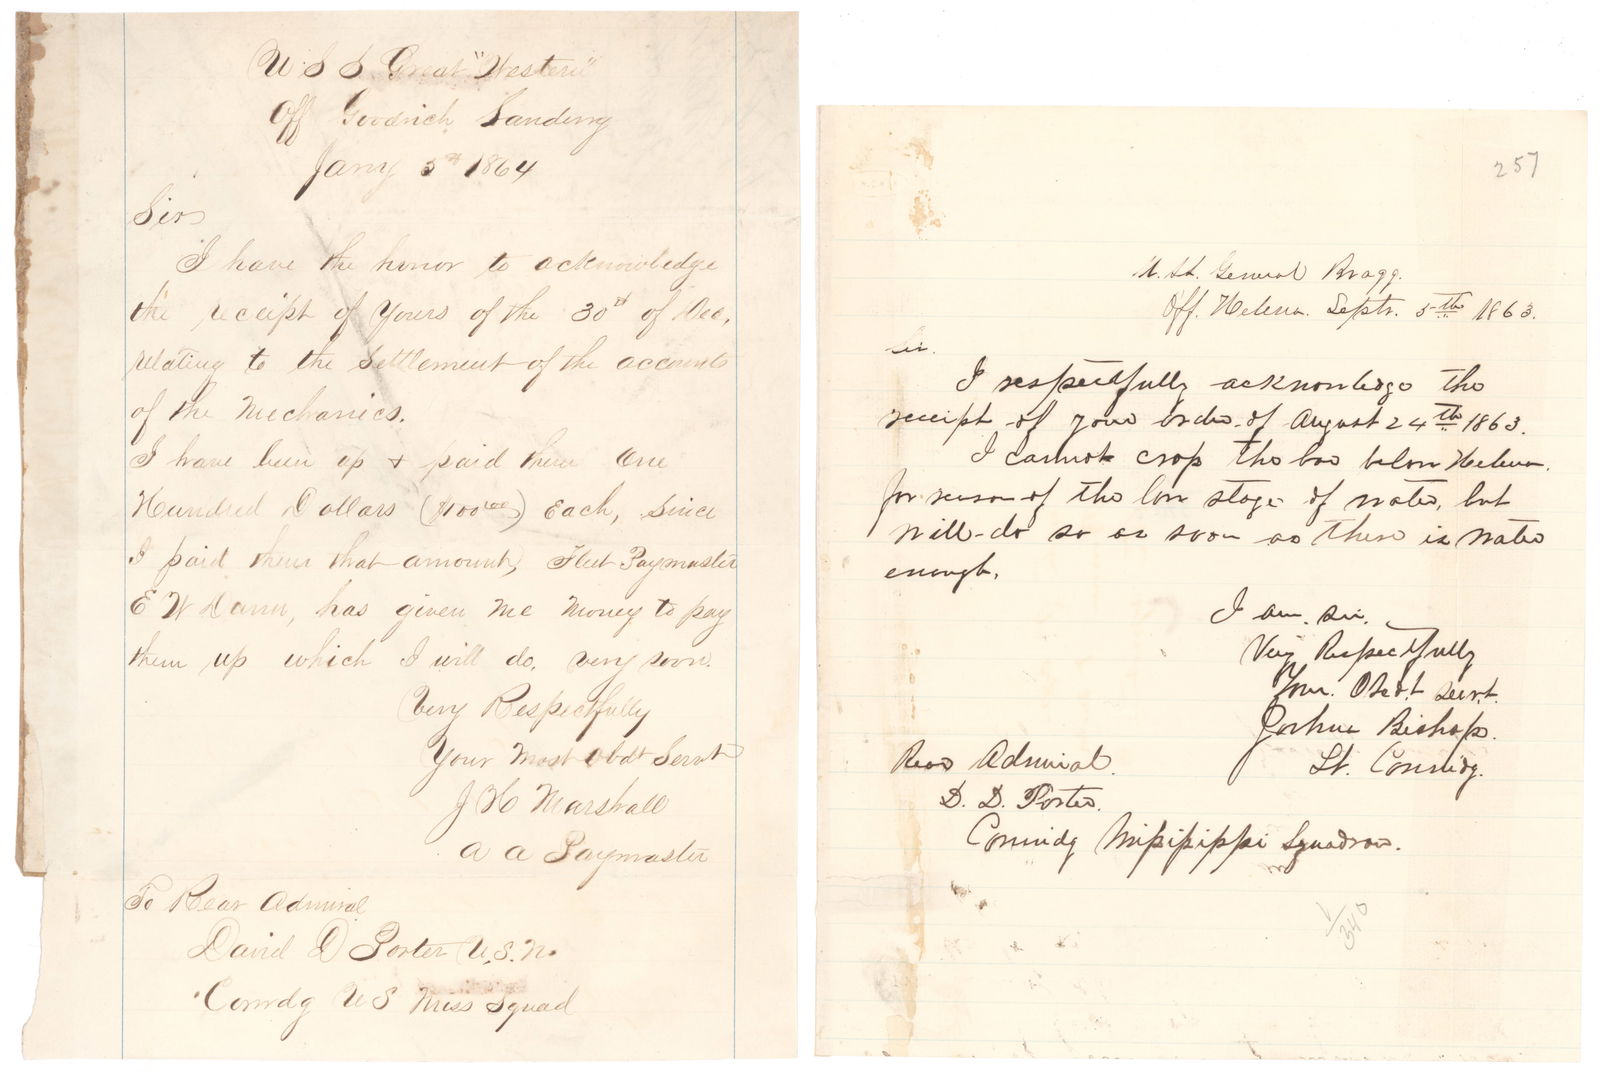 U S S Great "Western"
Off Goodrich Landing
Jany 5th 1864
Sir
I have the honor to acknowledge
the receipt of yours of the 30th of Dec,
relating to the settlement of the accounts
of the Mechanics.
I have been up & paid them One
Hundred Dollars ($100 00) Each, Since
I paid them that amount, Fleet Paymaster
E W Dunn, has given me money to pay
them up which I will do, very soon.
Very Respectfully
Your Most Obdt Servt
J H Marshall
A A Paymaster
To Rear Admiral
David D Porter U.S.N.
Comdg US Miss Squad
257
U.S.S. General Bragg.
Off. Helena. Septr. 5th 1863.
Sir.
I respectfully acknowledge the
receipt of your order of August 24th 1863.
I cannot crop the bar below Helena.
for reason of the low stage of water, but
will do so as soon as there is water
enough.
I am. sir.
Very Respectfully
Your. Obed.t Servt.
Joshua Bishop.
Lt. Commdg.
Rear Admiral.
D. D. Porter.
Commdg Missisippi Squadron.
1/340